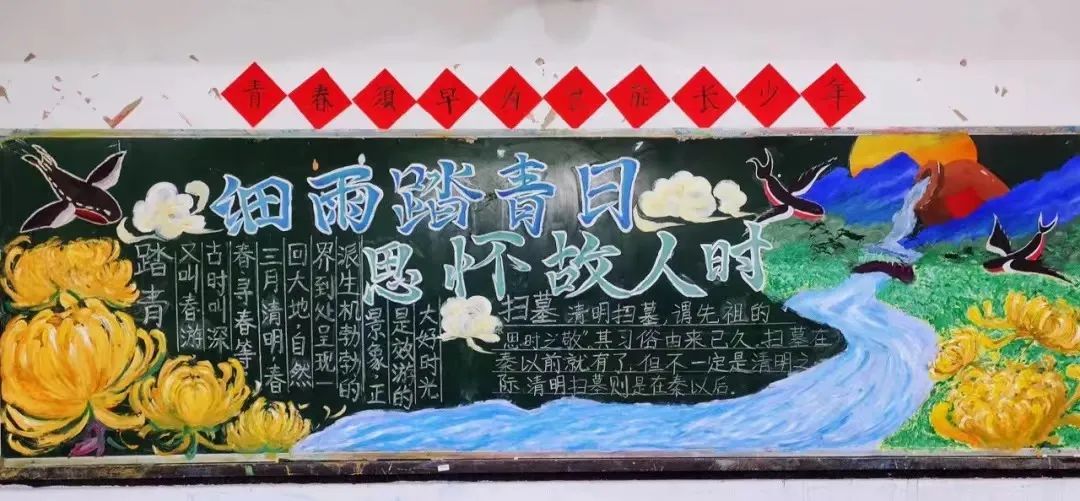 青春須早为岂能长少年
细雨踏青日
思怀故人时
踏青
又叫春游
古时叫深
春·寻春等
三月清明·春
回大地·自然
界到处呈现一
派生机勃勃的
景象·正
是效游的
大好时光
扫墓 清明扫墓,谓先祖的
思时之敬".其习俗由来已久.扫墓在
秦以前就有了,但不一定是清明之
际 清明扫墓则是在秦以后.